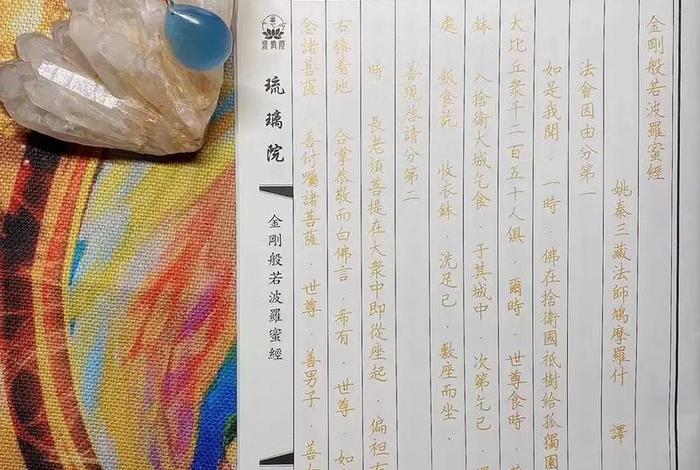 金剛般若波羅蜜經
姚秦三藏法師鳩摩羅什 譯
法會因由分第一
如是我聞．一時．佛在捨衛國祇樹給孤獨園
大比丘衆千二百五十人俱．爾時．世尊食時．
鉢．入捨衛大城乞食．于其城中．次第乞已．
處．飯食訖．收衣鉢．洗足已．敷座而坐．
善現啓請分第二
時．長老須菩提在大衆中即從座起．偏袒
右膝着地．合掌恭敬而白佛言．希有．世尊．如
念諸菩薩．善付囑諸菩薩．世尊．善男子．善
琉璃院
琉璃院
金剛般若波羅蜜經